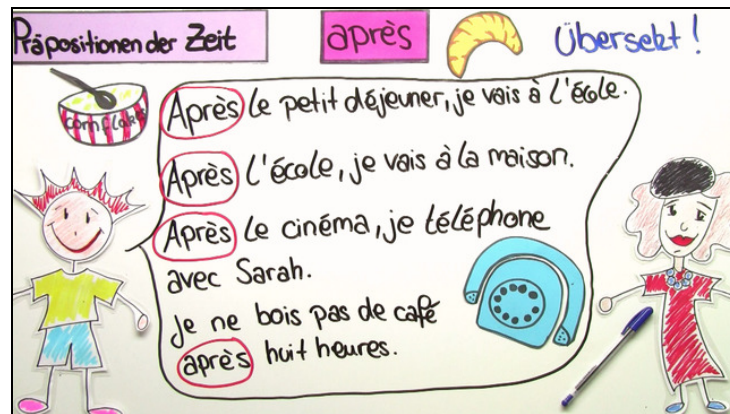 Präpositionen der Zeit
après
Übersetzt!
corn flakes
Après le petit déjeuner, je vais à l'école.
Après l'école, je vais à la maison.
Après le cinéma, je téléphone
avec Sarah.
je ne bois pas de café
après huit heures.